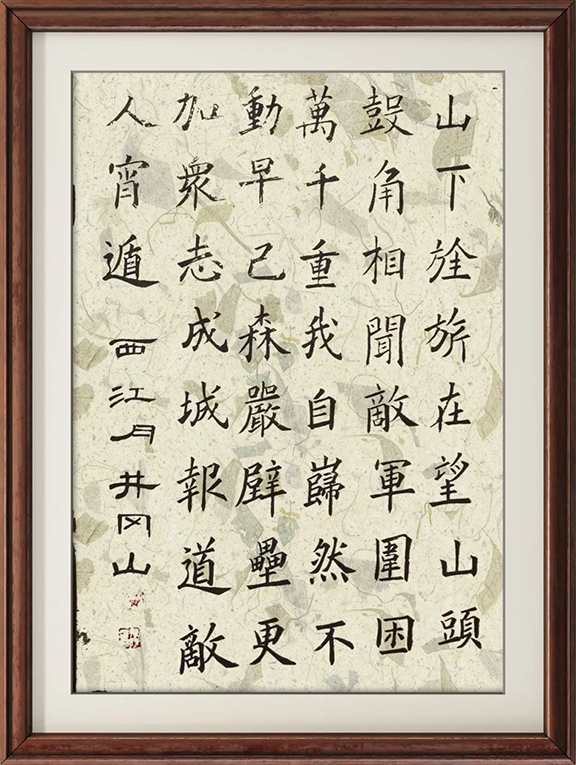 山下旌旂在望山頭
鼔角相聞敵軍圍困
萬千重我自巋然不
動早已森嚴壁壘更
加衆志成城報道敵
人宵遁 西江月井冈山